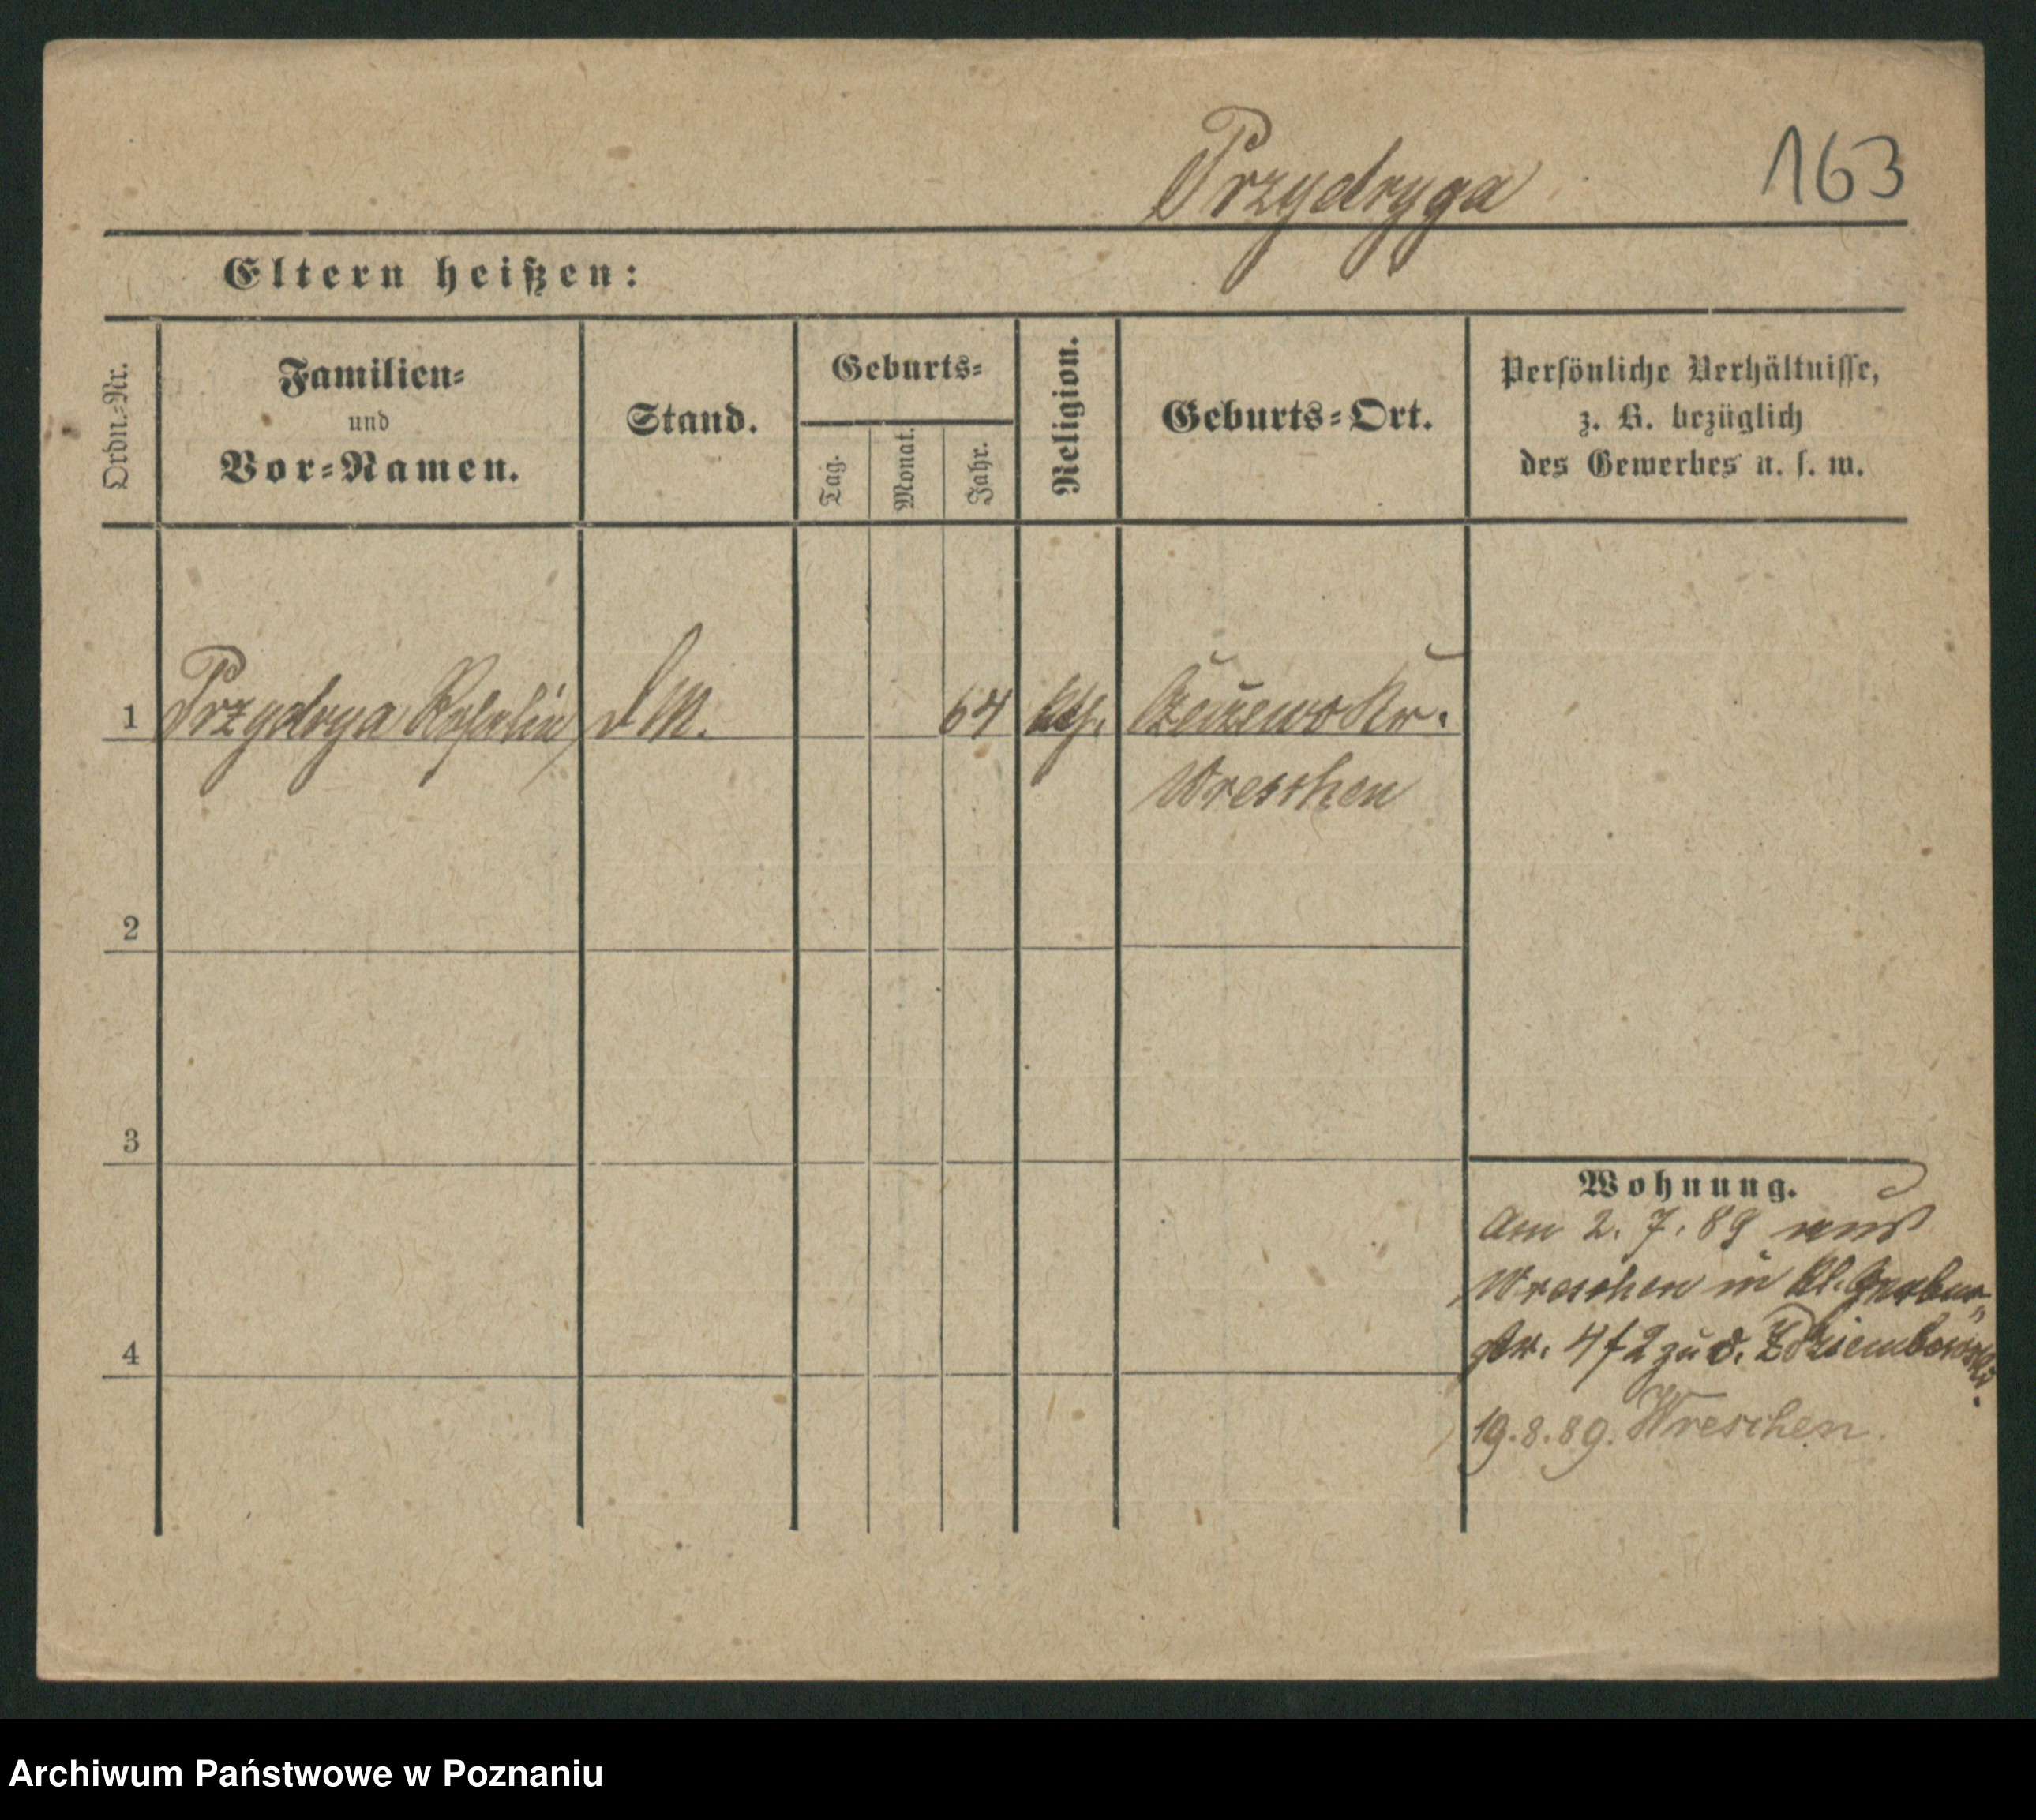 Przydryga
163
Eltern heißen:
Ordn.-Nr.
Familien-
und
Vor-Namen.
Stand.
Geburts-
Tag.
Monat.
Jahr.
Religion.
Geburts-Ort.
Persönliche Verhältnisse,
z. B. bezüglich
des Gewerbes u. s. w.
1
Przydryga
d M.
64
kth.
Kr.
Wreschen
2
3
4
Wohnung.
Am 2. 7. 89 aus
Wreschen in kl. Gerber
str. 4 f 2 zu d.
19. 8. 89. Wreschen.
Archiwum Państwowe w Poznaniu